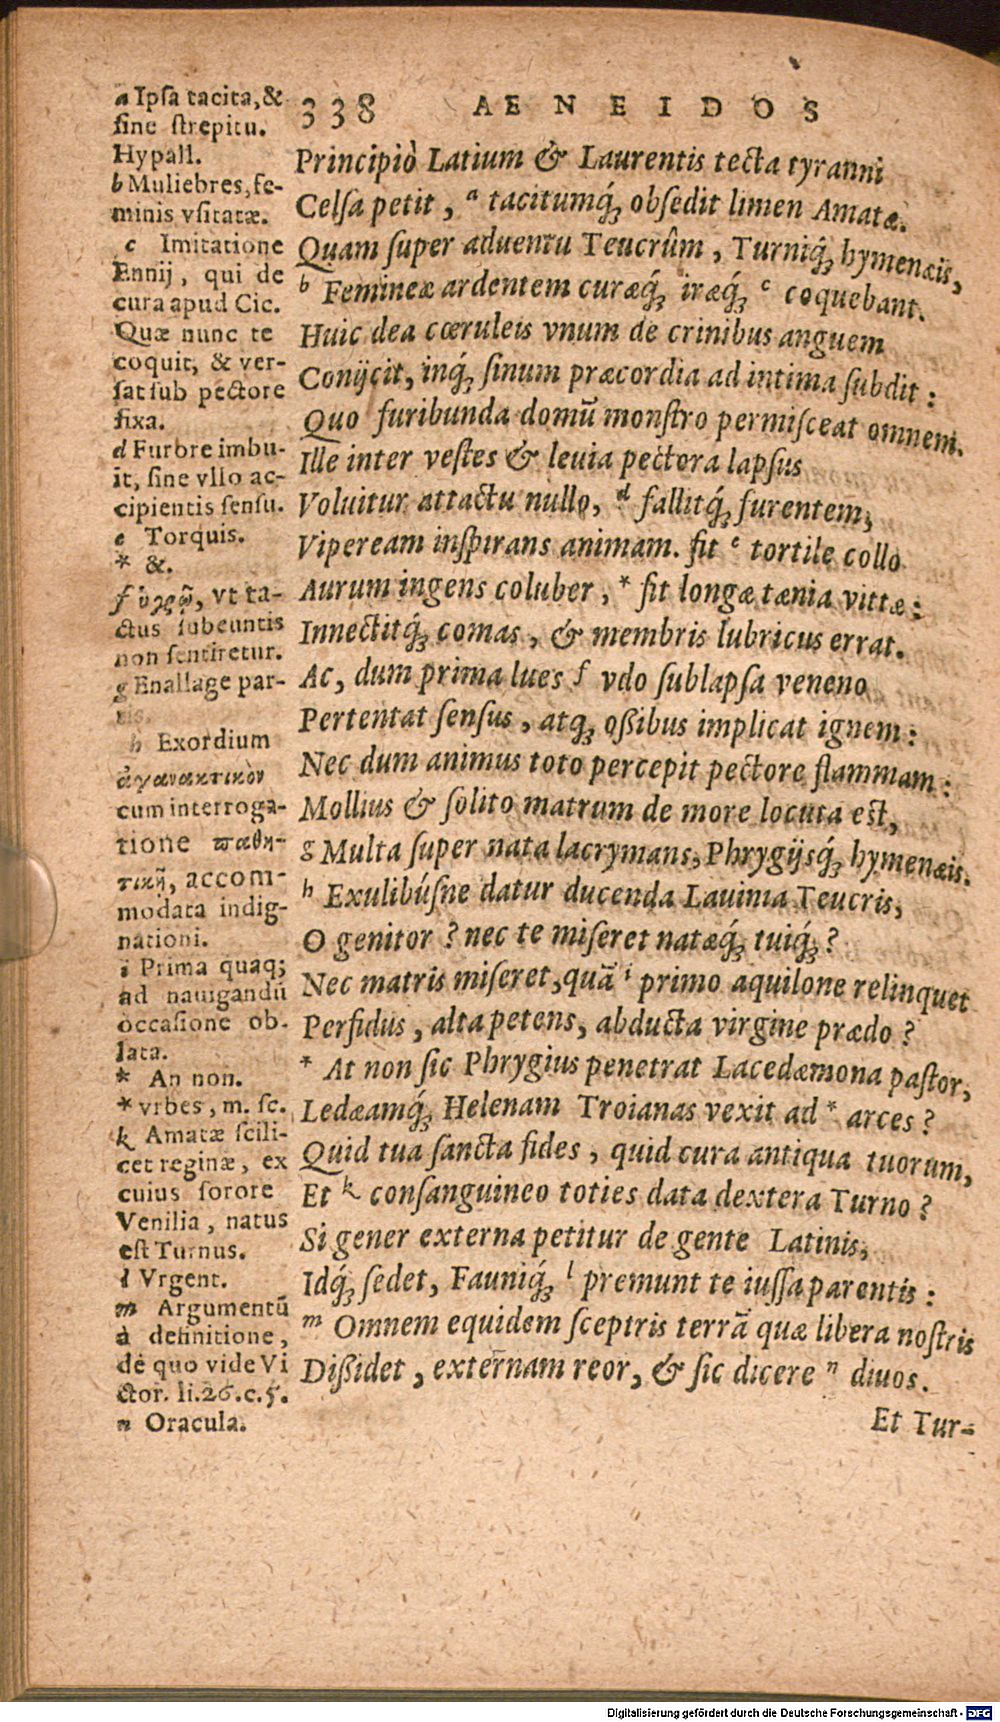 338 AENEIDOS
a Ipsa tacita, &
sine strepitu.
Hypall.
b Muliebres, fe-
minis vsitatæ.
c Imitatione
Ennij, qui de
cura apud Cic.
Quæ nunc te
coquit, & ver-
sat sub pectore
fixa.
d Furore imbu-
it, sine vllo ac-
cipientis sensu.
e Torquis.
* &.
f ὑγρῷ, vt ta-
ctus subeuntis
non sentiretur.
g Enallage par-
tis.
h Exordium
ἀγανακτικὸν
cum interroga-
tione παθη-
τικῇ, accom-
modata indig-
nationi.
i Prima quaq;
ad nauigandū
occasione ob-
lata.
* An non.
* vrbes, m. sc.
k Amatæ scili-
cet reginæ, ex
cuius sorore
Venilia, natus
est Turnus.
l Vrgent.
m Argumentū
à definitione,
de quo vide Vi
ctor. li. 26. c. 5.
n Oracula.
Principiò Latium & Laurentis tecta tyranni
Celsa petit, a tacitumq́; obsedit limen Amatæ.
Quam super aduentu Teucrûm, Turniq́; hymenæis,
b Femineæ ardentem curæq́; iræq́; c coquebant.
Huic dea cœruleis vnum de crinibus anguem
Conijcit, inq́; sinum præcordia ad intima subdit:
Quo furibunda domū monstro permisceat omnem.
Ille inter vestes & leuia pectora lapsus
Voluitur attactu nullo, d fallitq́; furentem,
Vipeream inspirans animam. fit e tortile collo
Aurum ingens coluber, * fit longæ tænia vittæ:
Innectitq́; comas, & membris lubricus errat.
Ac, dum prima lues f vdo sublapsa veneno
Pertentat sensus, atq; oßibus implicat ignem:
Nec dum animus toto percepit pectore flammam:
Mollius & solito matrum de more locuta est,
g Multa super nata lacrymans, Phrygijsq́; hymenæis.
h Exulibúsne datur ducenda Lauinia Teucris,
O genitor? nec te miseret natæq́; tuiq́;?
Nec matris miseret, quā i primo aquilone relinquet
Perfidus, alta petens, abducta virgine prædo?
* At non sic Phrygius penetrat Lacedæmona pastor,
Ledæamq́; Helenam Troianas vexit ad * arces?
Quid tua sancta fides, quid cura antiqua tuorum,
Et k consanguineo toties data dextera Turno?
Si gener externa petitur de gente Latinis,
Idq́; sedet, Fauniq́; l premunt te iussa parentis:
m Omnem equidem sceptris terrā quæ libera nostris
Dißidet, externam reor, & sic dicere n diuos.
Et Tur-
Digitalisierung gefördert durch die Deutsche Forschungsgemeinschaft - DFG